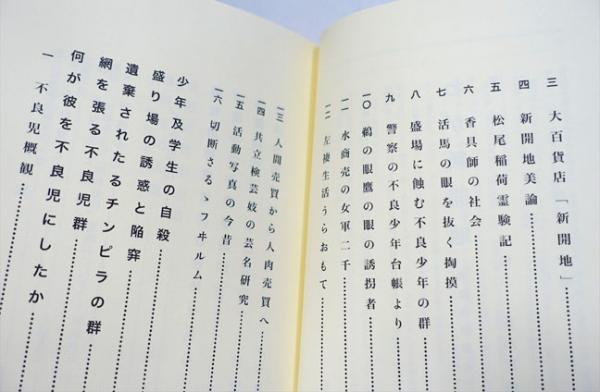 三 大百貨店「新開地」
四 新開地美論
五 松尾稲荷霊験記
六 香具師の社会
七 活馬の眼を抜く掏摸
八 盛場に蝕む不良少年の群
九 警察の不良少年台帳より
一〇 鵜の眼鷹の眼の誘拐者
一一 水商売の女軍二千
一二 左褄生活うらおもて
一三 人間売買から人肉売買へ
一四 共立検芸妓の芸名研究
一五 活動写真の今昔
一六 切断さるゝフヰルム
少年及学生の自殺
盛り場の誘惑と陥穽
遺棄されたるチンピラの群
網を張る不良児群
何が彼を不良児にしたか
一 不良児概観